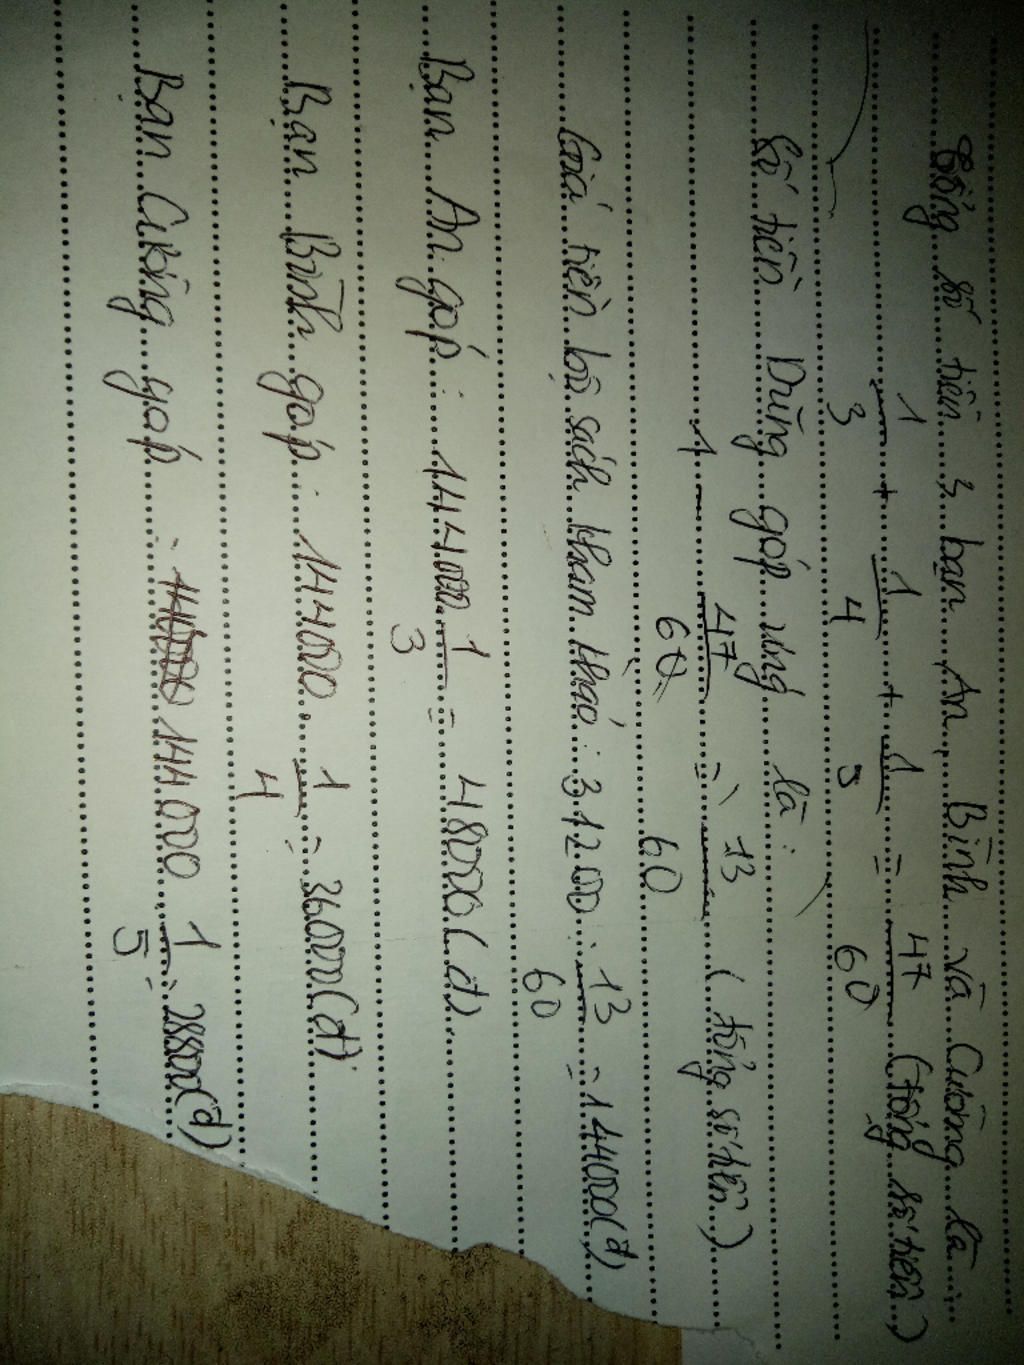 Tổng số tiền 3 bạn An, Bình và Cường là:
1/3 + 1/4 + 1/5 = 47/60 (tổng số tiền)
Số tiền Dũng góp ứng là:
1 - 47/60 = 13/60 (tổng số tiền)
Giá tiền bộ sách tham khảo: 31200 : 13/60 = 144000(đ)
Bạn An góp: 144000. 1/3 = 48000(đ).
Bạn Bình góp: 144000. 1/4 = 36000(đ)
Bạn Cường góp: 144000 1/5 = 28800(đ)